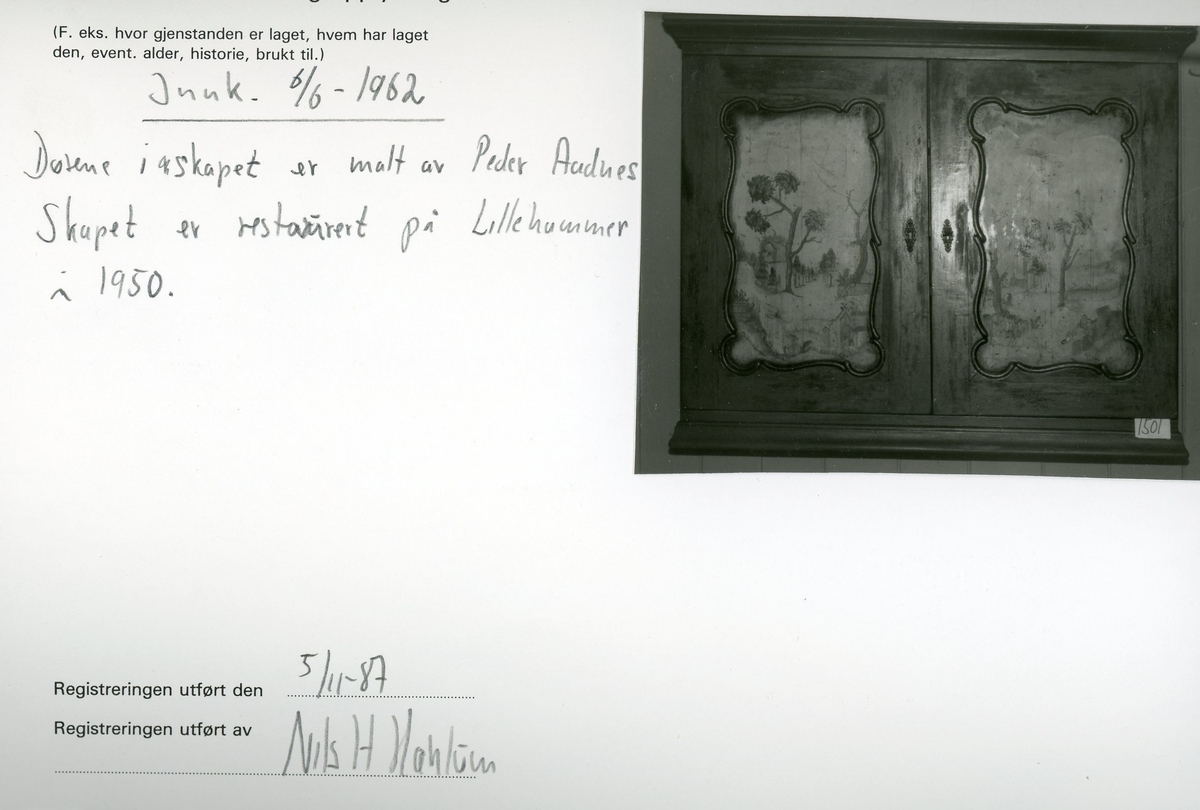 (F. eks. hvor gjenstanden er laget, hvem har laget
den, event. alder, historie, brukt til.)
Innk. 6/6 - 1962
Dørene i skapet er malt av Peder Aadnes
Skapet er restaurert på Lillehammer
i 1950.
1501
Registreringen utført den 5/11-87
Registreringen utført av Nils H